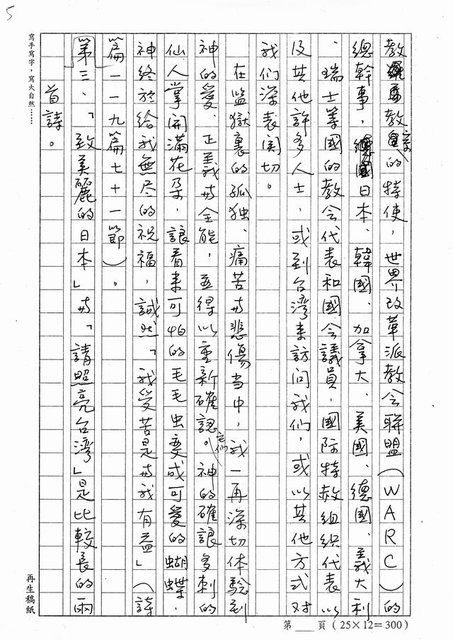 5
教宗的特使，世界改革派教会聯盟（WARC）的
總幹事，德國、日本、韓國、加拿大、美國、德國、義大利
、瑞士等國的教会代表和國会議員，國际特赦組织代表以
及其他許多人士，或到台湾来訪问我们，或以其他方式对
我们深表関切。
在监獄裏的孤独、痛苦与悲傷当中，我一再深切体驗到
神的爱、正義与全能，並得以重新確認它们。神的確讓多刺的
仙人掌開滿花朵，讓看来可怕的毛毛虫变成可爱的蝴蝶，
神終於给我無尽的祝福，誠然「我受苦是与我有益」（詩
篇一一九篇七十一節）。
第三、「致美麗的日本」与「請照亮台湾」是比較長的兩
首詩。
寫手寫字，寫大自然……
再生稿紙
第　頁（25×12=300）